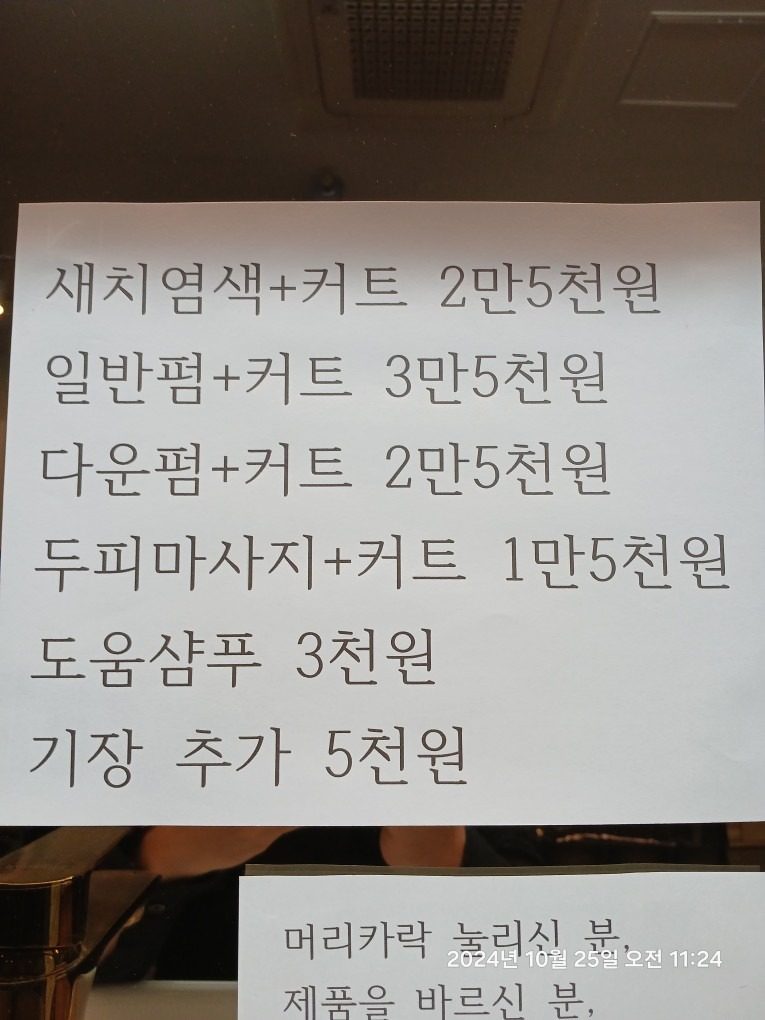 새치염색+커트 2만5천원
일반펌+커트 3만5천원
다운펌+커트 2만5천원
두피마사지+커트 1만5천원
도움샴푸 3천원
기장 추가 5천원
머리카락 눌리신 분,
2024년 10월 25일 오전 11:24
제품을 바르신 분,